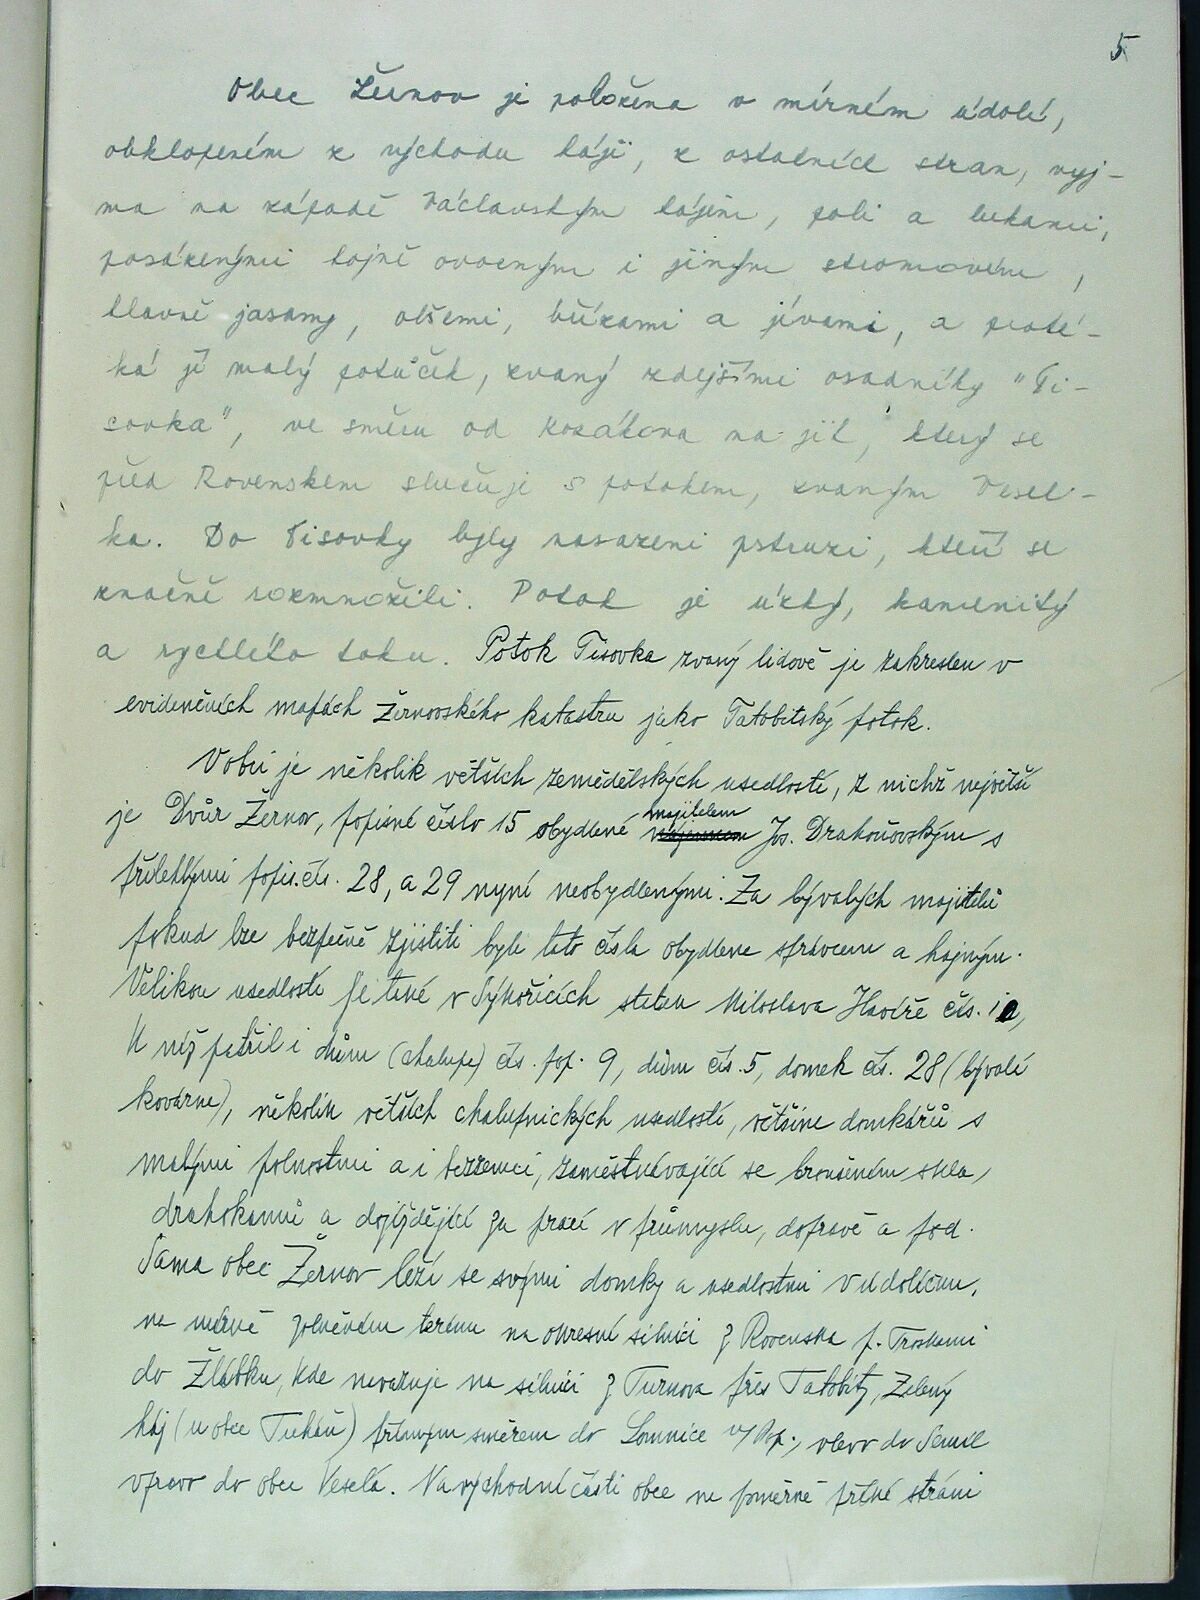 5
Obec Žernov je položena v mírném údolí,
obklopeném z východu háji, z ostatních stran, vyj-
ma na západě Václavským hájem, poli a lukami,
posázenými hojně ovocným i jiným stromovím,
hlavně jasany, olšemi, břízami a jívami, a proté-
ká jí malý potůček, zvaný zdejšími osadníky "Ti-
sovka", ve směru od Kozákova na jih, který se
před Rovenskem slučuje s potokem, zvaným Vesel-
ka. Do Tisovky byly nasazeni pstruzi, kteří se
značně rozmnožili. Potok je úzký, kamenitý
a rychlého toku. Potok Tisovka zvaný lidově je zakreslen v
evidenčních mapách Žernovského katastru jako Tatobitský potok.
V obci je několik větších zemědělských usedlostí, z nichž největší
majitelem
je Dvůr Žernov, popisné číslo 15 obydlené Jos. Drahoňovským s
přilehlými popis. čís. 28, a 29 nyní neobydlenými. Za bývalých majitelů
pokud lze bezpečně zjistiti byli tato čísla obydlena správcem a hajným.
Velikou usedlostí je také v Sýkořicích statek Miloslava Havíře čís.
K níž patřil i dům (chalupa) čís. pop. 9, dům čís. 5, domek čís. 28 (bývalá
kovárna), několik větších chalupnických usedlostí, většina domkářů s
malými polnostmi a i bezzemci, zaměstnávající se broušením skla,
drahokamů a dojíždějící za prací v průmyslu, dopravě a pod.
Sama obec Žernov leží se svými domky a usedlostmi v údolíčnu,
na mírně zvlněném terénu na okresní silnici z Rovenska p. Troskami
do Žlábku, kde navazuje na silnici z Turnova přes Tatobity, Zelený
háj (u obce Tuháň) přímým směrem do Lomnice n/Pop., vlevo do Semil
vpravo do obce Veselá. Na východní části obce na poměrně příkré stráni